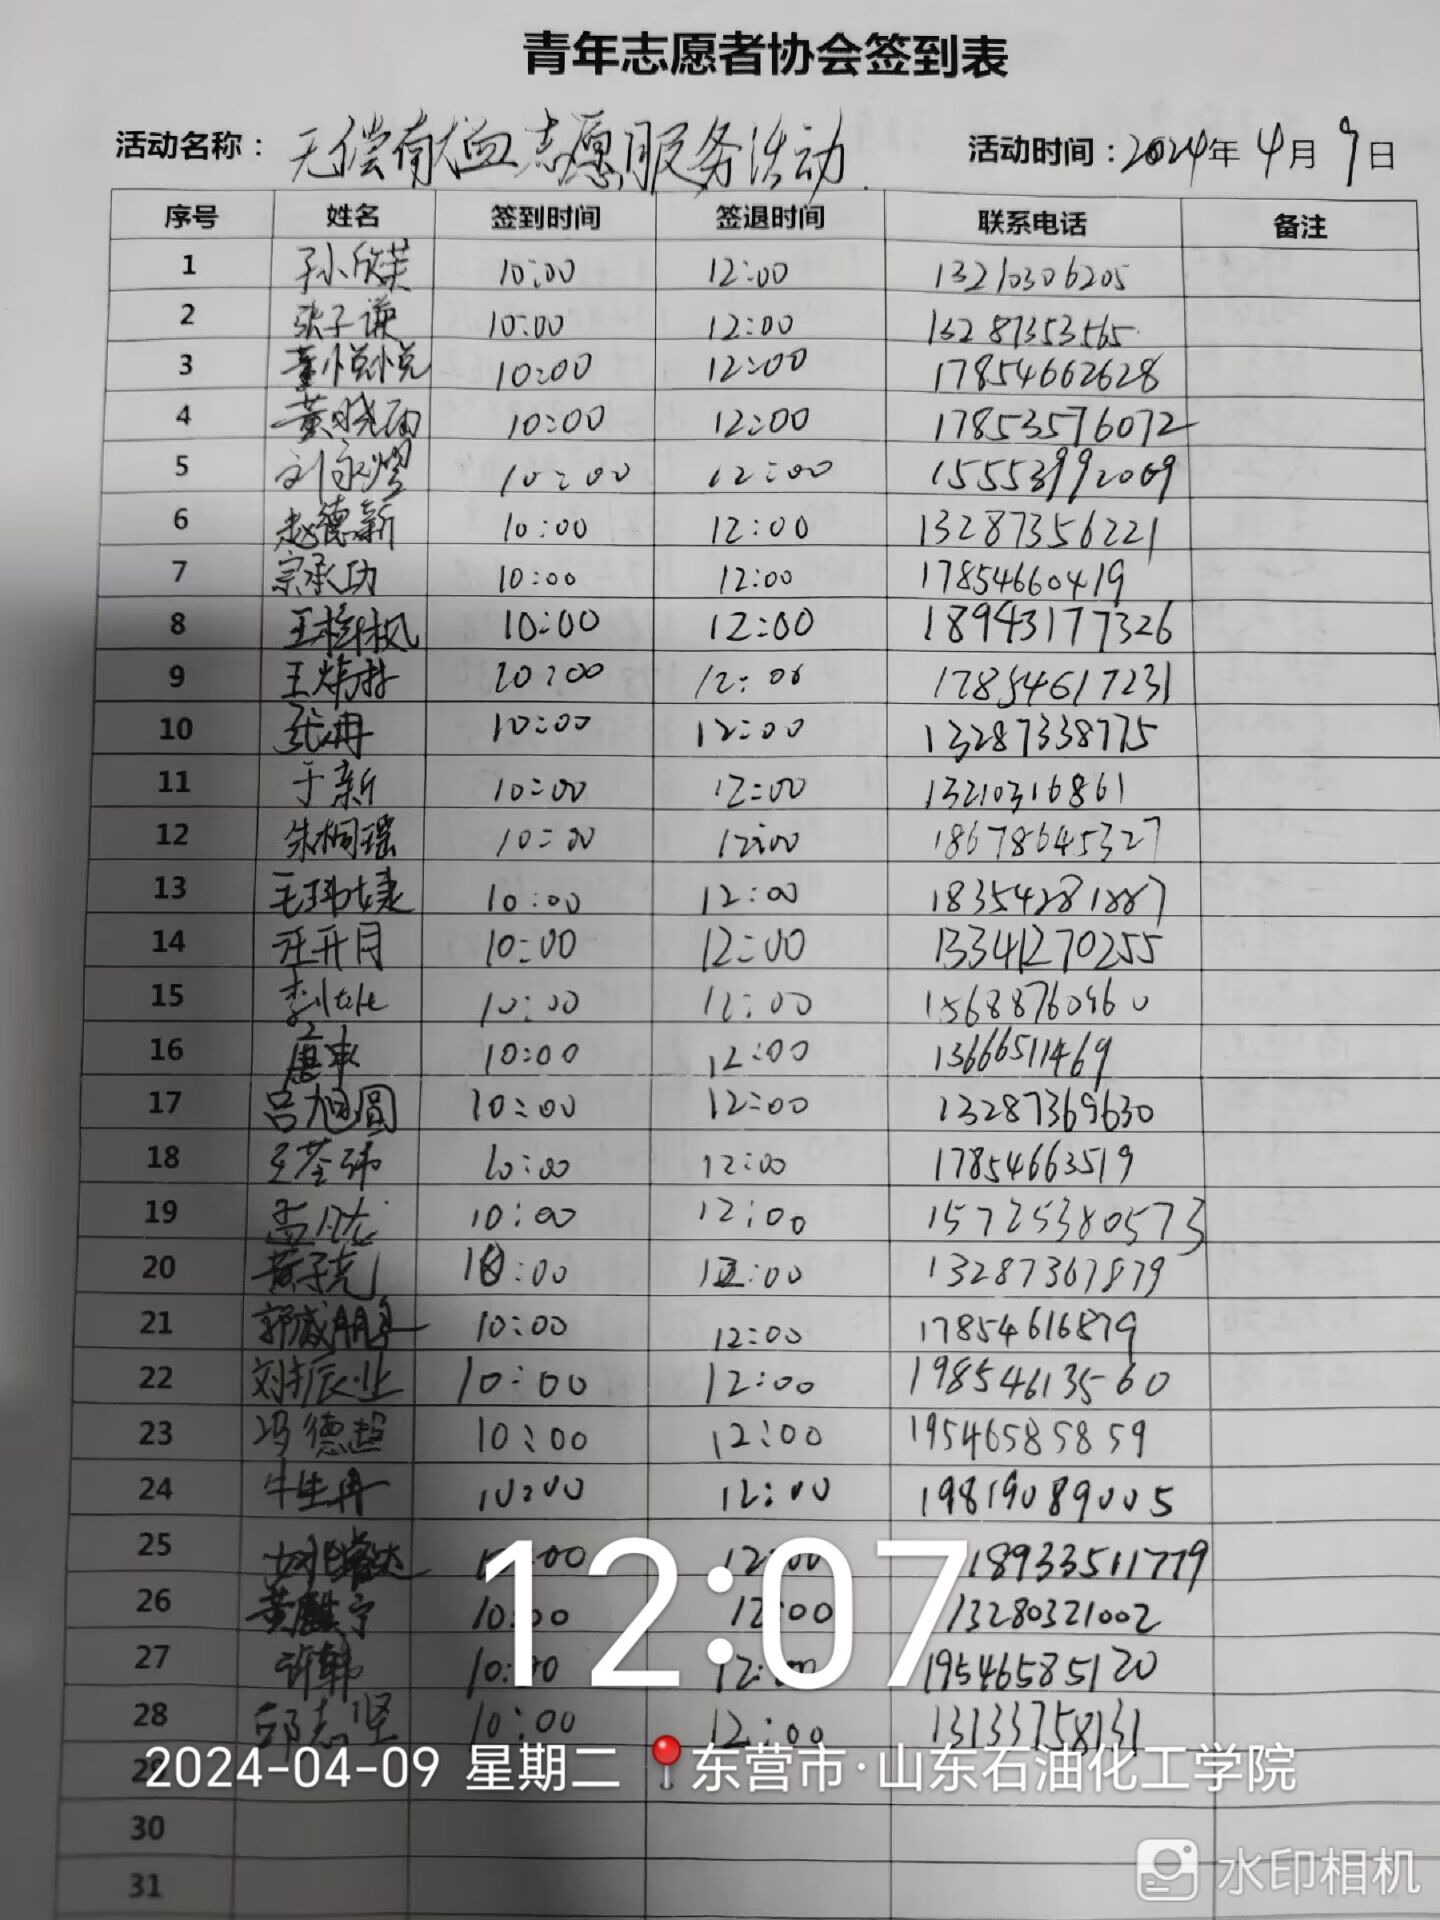 青年志愿者协会签到表
活动名称：无偿献血志愿服务活动 活动时间：2024年4月9日
序号 姓名 签到时间 签退时间 联系电话 备注
1 孙欣芙 10:00 12:00 13210306205
2 张子谦 10:00 12:00 13287353565
3 董悦悦 10:00 12:00 17854662628
4 黄晓雨 10:00 12:00 17853576072
5 刘永熠 10:00 12:00 15553992069
6 赵德新 10:00 12:00 13287356221
7 宗承功 10:00 12:00 17854660419
8 王 枫 10:00 12:00 18943177326
9 王炜 10:00 12:00 17854617231
10 张冉 10:00 12:00 13287338775
11 于新 10:00 12:00 13210316861
12 朱桐瑶 10:00 12:00 18678645327
13 王玮婕 10:00 12:00 18354281887
14 汪开月 10:00 12:00 13341270255
15 李 10:00 12:00 15688760960
16 唐 10:00 12:00 13666511469
17 吕旭圆 10:00 12:00 13287369630
18 王荃玮 10:00 12:00 17854663519
19 孟凡龙 10:00 12:00 15725380573
20 黄子亮 10:00 12:00 13287367879
21 郭威 10:00 12:00 17854616879
22 刘振业 10:00 12:00 19854613560
23 冯德超 10:00 12:00 19546585859
24 牛生冉 10:00 12:00 19819089005
25 12:00 18933511779
26 黄 宁 10:00 12:00 13280321002
27 许韩 10:00 12:00 19546585120
28 邱志坚 10:00 12:00 13133758131
12:07
29
2024-04-09 星期二 东营市·山东石油化工学院
30
31
水印相机